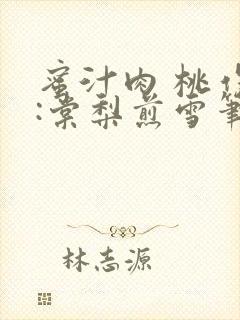 蜜汁肉桃作
:棠梨煎雪筆
林志源